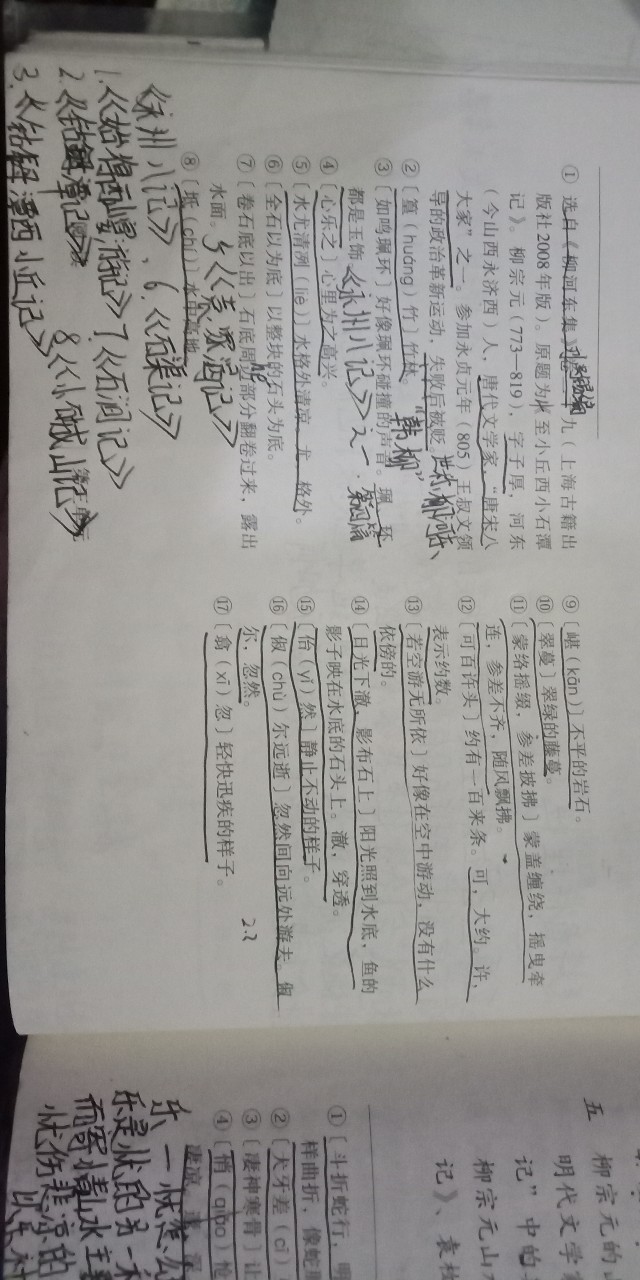 ① 选自《柳河东集》
九（上海古籍出
版社2008年版）。原题为
至小丘西小石潭
记》。柳宗元（773—819），字子厚，河东
（今山西永济西）人，唐代文学家，“唐宋八
大家”之一。参加永贞元年（805）王叔文领
导的政治革新运动，失败后被贬
②〔篁（huáng）竹〕竹林。
③〔如鸣珮环〕好像珮环碰撞的声音。珮、环
都是玉饰
④〔心乐之〕心里为之高兴。
⑤〔水尤清洌（liè）〕水格外清凉。尤，格外。
⑥〔全石以为底〕以整块的石头为底。
⑦〔卷石底以出〕石底周边部分翻卷过来，露出
水面。
⑧〔坻（chí）〕水中高地
韩柳
《永州八记》之一
第四篇
《永州八记》
1.《始得西山宴游记》
2.《钴鉧潭记》
3.《钴鉧潭西小丘记》
5《袁家渴记》
6.《石渠记》
7《石涧记》
8《小石城山记》
⑨〔嵁（kān）〕不平的岩石。
⑩〔翠蔓〕翠绿的藤蔓。
⑪〔蒙络摇缀，参差披拂〕蒙盖缠绕，摇曳牵
连，参差不齐，随风飘拂。
⑫〔可百许头〕约有一百来条。可，大约。许，
表示约数。
⑬〔若空游无所依〕好像在空中游动，没有什么
依傍的。
⑭〔日光下澈，影布石上〕阳光照到水底，鱼的
影子映在水底的石头上。澈，穿透。
⑮〔佁（yǐ）然〕静止不动的样子。
⑯〔俶（chù）尔远逝〕忽然间向远处游去。俶
尔，忽然。
⑰〔翕（xī）忽〕轻快迅疾的样子。
22
五 柳宗元的山
明代文学
记”中的
柳宗元山
记》、袁
①〔斗折蛇行，明
样曲折，像蛇
②〔犬牙差（cī）
③〔凄神寒骨〕让
凄凉，
④〔悄（qiǎo）怆
乐、一忧怎么
乐是忧的另一
而寄情山水主
忧伤悲凉的
以乐衬